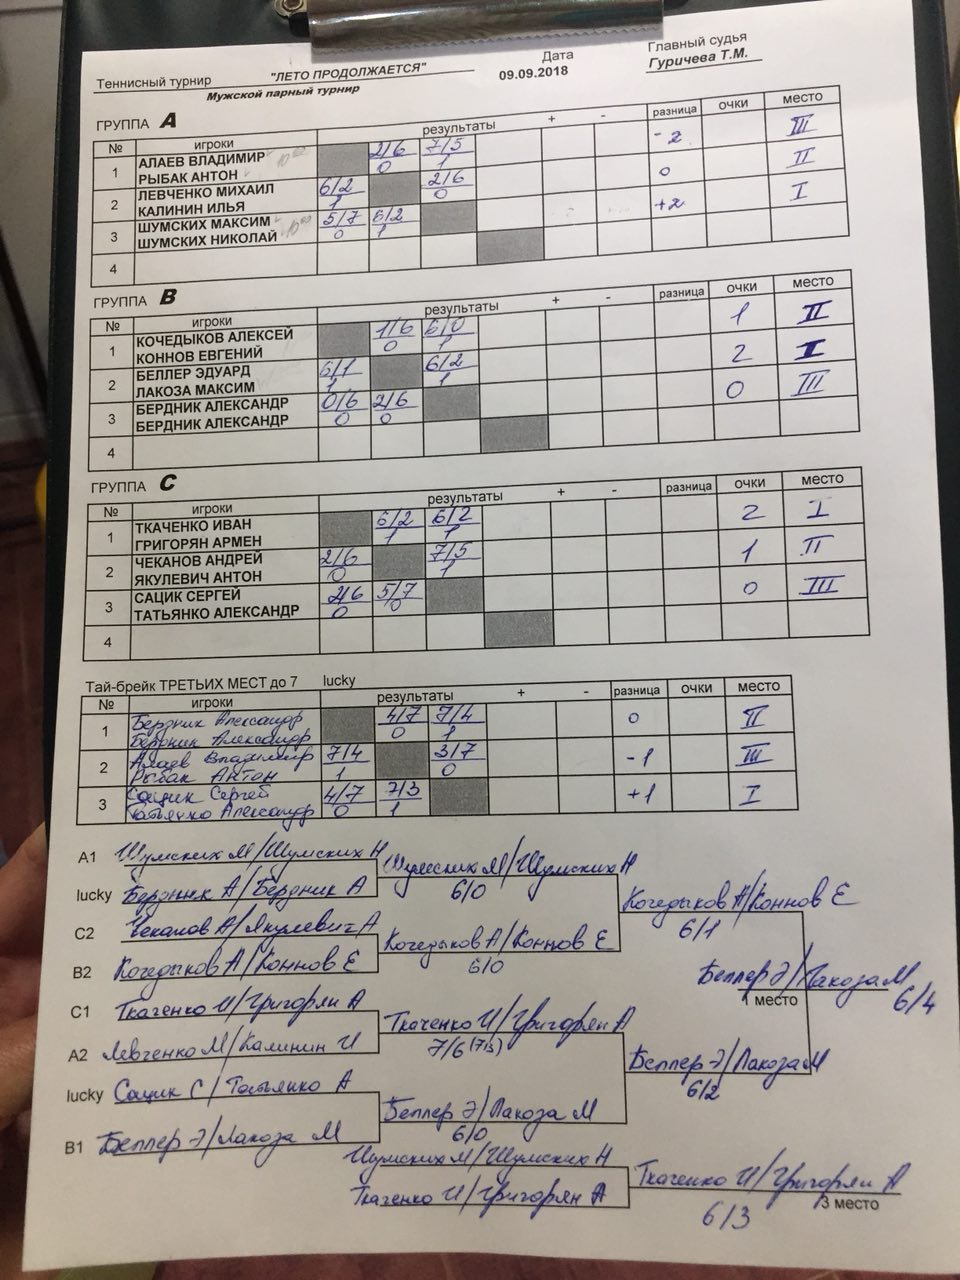 Теннисный турнир "ЛЕТО ПРОДОЛЖАЕТСЯ" Дата Главный судья
Мужской парный турнир 09.09.2018 Гуричева Т.М.
ГРУППА A
№ игроки результаты + - разница очки место
1 АЛАЕВ ВЛАДИМИР 2/6 7/5 -2 III
РЫБАК АНТОН 0 1
2 ЛЕВЧЕНКО МИХАИЛ 6/2 2/6 0 II
КАЛИНИН ИЛЬЯ 1 0
3 ШУМСКИХ МАКСИМ 5/7 6/2 +2 I
ШУМСКИХ НИКОЛАЙ 0 1
4
ГРУППА B
№ игроки результаты + - разница очки место
1 КОЧЕДЫКОВ АЛЕКСЕЙ 1/6 6/0 1 II
КОННОВ ЕВГЕНИЙ 0 1
2 БЕЛЛЕР ЭДУАРД 6/1 6/2 2 I
ЛАКОЗА МАКСИМ 1 1
3 БЕРДНИК АЛЕКСАНДР 0/6 2/6 0 III
БЕРДНИК АЛЕКСАНДР 0 0
4
ГРУППА C
№ игроки результаты + - разница очки место
1 ТКАЧЕНКО ИВАН 6/2 6/2 2 I
ГРИГОРЯН АРМЕН 1 1
2 ЧЕКАНОВ АНДРЕЙ 2/6 7/5 1 II
ЯКУЛЕВИЧ АНТОН 0 1
3 САЦИК СЕРГЕЙ 2/6 5/7 0 III
ТАТЬЯНКО АЛЕКСАНДР 0 0
4
Тай-брейк ТРЕТЬИХ МЕСТ до 7 lucky
№ игроки результаты + - разница очки место
1 Бердник Александр 4/7 7/4 0 II
Бердник Александр 0 1
2 Алаев Владимир 7/4 3/7 -1 III
Рыбак Антон 1 0
3 Сацик Сергей 4/7 7/3 +1 I
Татьянко Александр 0 1
A1 Шумских М/Шумских Н
Шумских М/Шумских Н
6/0
lucky Бердник А/Бердник А
Кочедыков А/Коннов Е
6/1
C2 Чеканов А/Якулевич А
Кочедыков А/Коннов Е
6/0
B2 Кочедыков А/Коннов Е
Беллер Э/Лакоза М
1 место 6/4
C1 Ткаченко И/Григорян А
Ткаченко И/Григорян А
7/6 (7/3)
A2 Левченко М/Калинин И
Беллер Э/Лакоза М
6/2
lucky Сацик С/Татьянко А
Беллер Э/Лакоза М
6/0
B1 Беллер Э/Лакоза М
Шумских М/Шумских Н
Ткаченко И/Григорян А
3 место
6/3
Ткаченко И/Григорян А